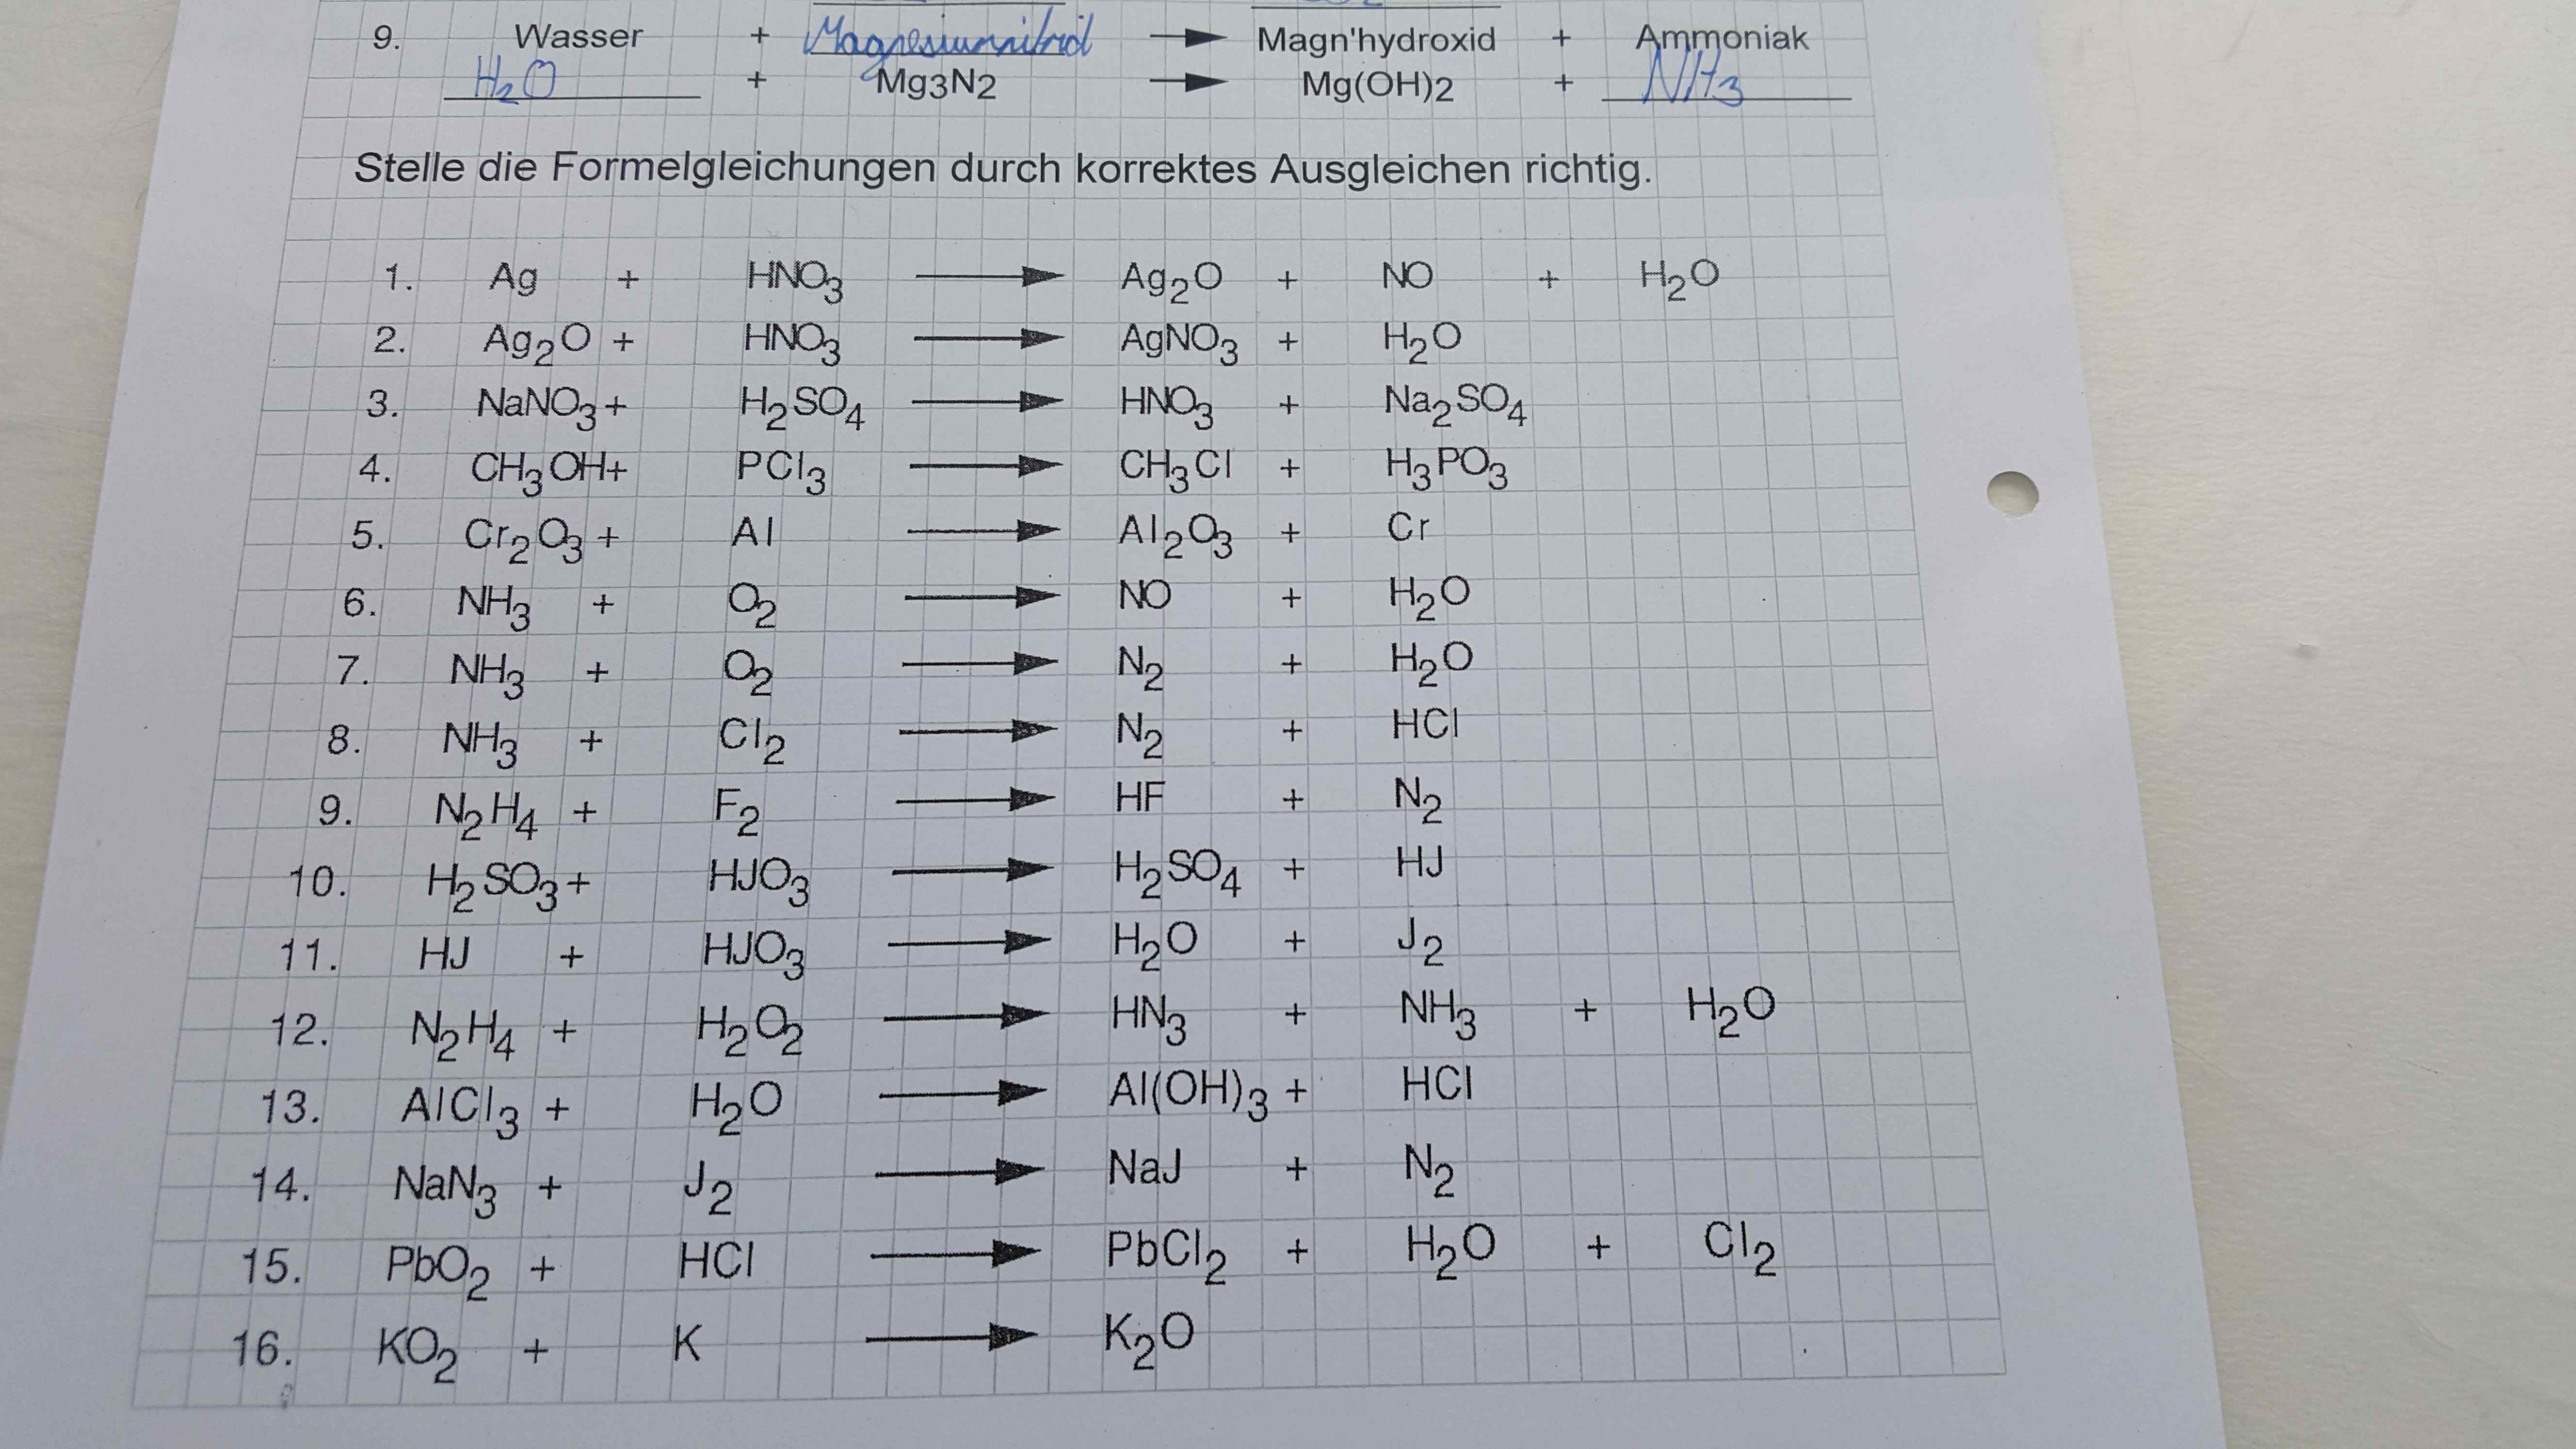 9. Wasser + Magnesiumnitrid → Magn'hydroxid + Ammoniak
H2O + Mg3N2 → Mg(OH)2 + NH3
Stelle die Formelgleichungen durch korrektes Ausgleichen richtig.
1. Ag + HNO3 → Ag2O + NO + H2O
2. Ag2O + HNO3 → AgNO3 + H2O
3. NaNO3 + H2SO4 → HNO3 + Na2SO4
4. CH3OH + PCl3 → CH3Cl + H3PO3
5. Cr2O3 + Al → Al2O3 + Cr
6. NH3 + O2 → NO + H2O
7. NH3 + O2 → N2 + H2O
8. NH3 + Cl2 → N2 + HCl
9. N2H4 + F2 → HF + N2
10. H2SO3 + HJO3 → H2SO4 + HJ
11. HJ + HJO3 → H2O + J2
12. N2H4 + H2O2 → HN3 + NH3 + H2O
13. AlCl3 + H2O → Al(OH)3 + HCl
14. NaN3 + J2 → NaJ + N2
15. PbO2 + HCl → PbCl2 + H2O + Cl2
16. KO2 + K → K2O